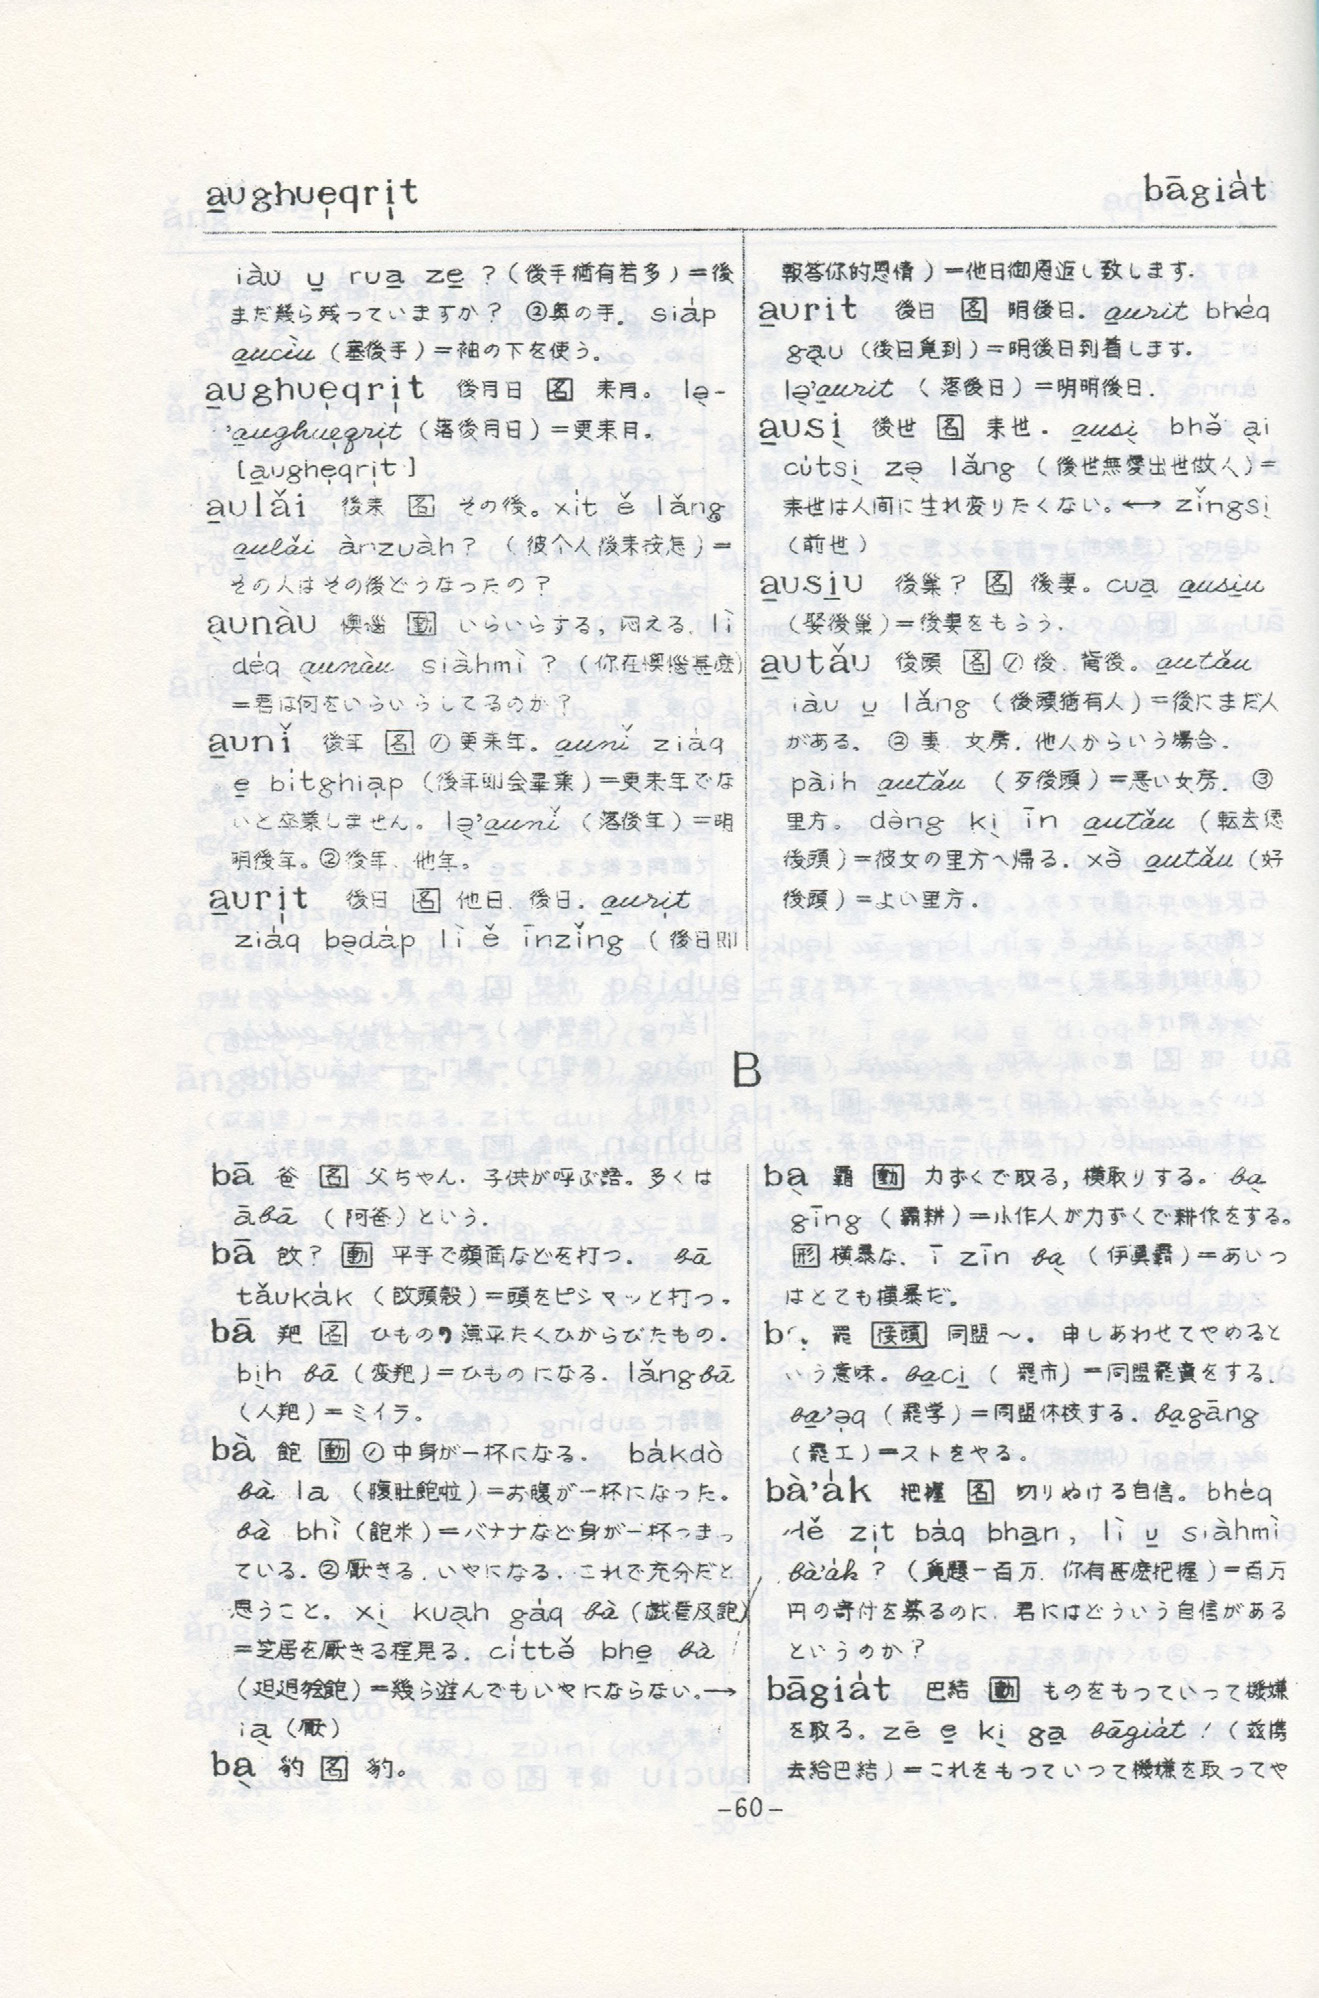 a̠ughue̩qri̩t
bāgia̍t
iàu u̠ rua̠ ze̠ ? (後手猶有若多) = 後
まだ幾ら残っていますか? ②奥の手。 sia̍p
a̠uciù (塞後手) = 袖の下を使う。
a̠ughue̩qri̩t 後月日 名 来月。 lə̩-
'a̠ughue̩qri̩t (落後月日) = 更来月。
[a̠ughe̩qri̩t]
a̠ulǎi 後来 名 その後。 xi̍t ě lǎng
a̠ulǎi ànzuàh? (彼个人後来按怎) =
その人はその後どうなったの?
a̠unàu 懊惱 動 いらいらする, 悶える. lì
de̍q a̠unàu siàhmì ? (你在懊惱甚麼)
=君は何をいらいらしてるのか?
a̠unǐ 後年 名 ①更来年。 a̠unǐ zia̍q
e̠ bi̍tghia̩p (後年即会畢業) = 更来年でな
いと卒業しません。 lə̩'a̠unǐ (落後年) = 明
明後年。②後年、他年。
a̠uri̩t 後日 名 他日、後日. a̠uri̩t
zia̍q bə̠da̍p lì ě īnzǐng (後日即
報答你的恩情) = 他日御恩返し致します.
a̠urit 後日 名 明後日. a̠urit bhe̍q
ga̠u (後日覓到) = 明後日到着します.
lə̩'a̠urit (落後日) = 明明後日.
a̠usi̠ 後世 名 来世. a̠usi̠ bhə̌ a̠i
cu̍tsi̠ zə̠ lǎng (後世無愛出世做人) =
来世は人间に生れ変りたくない。⟷ zǐngsi̠
(前世)
a̠usi̠u 後巣? 名 後妻。 cua̠ a̠usi̠u
(娶後巣) = 後妻をもらう.
a̠utǎu 後頭 名 ①後、背後。 a̠utǎu
iàu u̠ lǎng (後頭猶有人) = 後にまだ人
がある。 ② 妻、女房. 他人からいう場合.
pàih a̠utǎu (歹後頭) = 悪い女房. ③
里方。 dèng ki̠ īn a̠utǎu (転去
後頭) = 彼女の里方へ帰る. xə̀ a̠utǎu (好
後頭) = よい里方.
B
bā 爸 名 父ちゃん. 子供が呼ぶ語。多くは
ābā (阿爸) という.
bā ? 動 平手で顔面などを打つ. bā
tǎuka̍k (頭殻) = 頭をピシャッと打つ.
bā 羓 名 ひものの薄平たくひからびたもの.
bi̠h bā (変羓) = ひものになる. lǎngbā
(人羓) = ミイラ。
bà 飽 動 ①中身が一杯になる. ba̍kdò
bà la (腹肚飽啦) = お腹が一杯になった.
bà bhì (飽米) = バナナなど身が一杯つまっ
ている. ②厭きる, いやになる. これで充分だと
思うこと。 xi̠ kua̠h ga̍q bà (戯看及飽)
=芝居を厭きる程見る. ci̍ttə̌ bhe̠ bà
(𨑨迌飽) = 幾ら遊んでもいやにならない.→
ia̠ (厭)
ba̠ 豹 名 豹。
ba̠ 霸 動 力ずくで取る, 横取りする. ba̠
gīng (霸耕) = 小作人が力ずくで耕作をする.
形 横暴な. ī zīn ba̠ (伊真霸) = あいつ
はとても横暴だ.
罷 接頭 同盟~. 申しあわせてやめると
いう意味。 ba̠ci̠ (罷市) = 同盟罷賣をする.
ba̠'əq (罷学) = 同盟休校する. ba̠gāng
(罷工) = ストをやる.
bà'a̍k 把握 名 切りぬける自信。 bhe̍q
dě zi̩t ba̍q bha̠n, lì u̠ siàhmì
bà'a̍k ? (覓題一百万, 你有甚麼把握) = 百万
円の寄付を募るのに, 君にはどういう自信がある
というのか?
bāgia̍t 巴結 動 ものをもっていって機嫌
を取る. zē e̠ ki̠ ga̠ bāgia̍t ! (茲携
去給巴結) = これをもっていって機嫌を取ってや
-60-